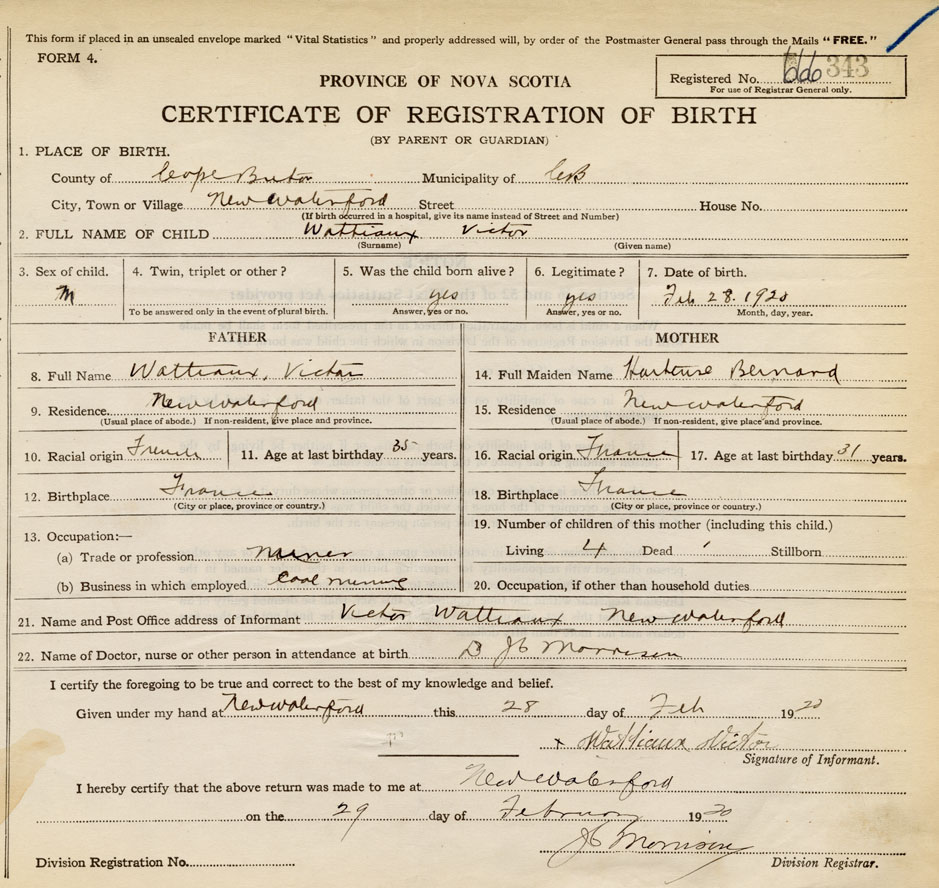 This form if placed in an unsealed envelope marked "Vital Statistics" and properly addressed will, by order of the Postmaster General pass through the Mails "FREE."
FORM 4.
PROVINCE OF NOVA SCOTIA
Registered No. 343
For use of Registrar General only.
CERTIFICATE OF REGISTRATION OF BIRTH
(BY PARENT OR GUARDIAN)
1. PLACE OF BIRTH.
County of Cape Breton Municipality of CB
City, Town or Village New Waterford Street House No.
(If birth occurred in a hospital, give its name instead of Street and Number)
2. FULL NAME OF CHILD Wattiaux Victor
(Surname) (Given name)
3. Sex of child. 4. Twin, triplet or other? 5. Was the child born alive? 6. Legitimate? 7. Date of birth.
M yes yes Feb 28. 1920
To be answered only in the event of plural birth. Answer, yes or no. Answer, yes or no. Month, day, year.
FATHER MOTHER
8. Full Name Wattiaux, Victor 14. Full Maiden Name Hortense Bernard
9. Residence New Waterford 15. Residence New Waterford
(Usual place of abode.) If non-resident, give place and province. (Usual place of abode.) If non-resident, give place and province.
10. Racial origin French 11. Age at last birthday 35 years. 16. Racial origin France 17. Age at last birthday 31 years.
12. Birthplace France 18. Birthplace France
(City or place, province or country.) (City or place, province or country.)
13. Occupation:— 19. Number of children of this mother (including this child.)
(a) Trade or profession miner Living 4 Dead Stillborn
(b) Business in which employed Coal mining 20. Occupation, if other than household duties
21. Name and Post Office address of Informant Victor Wattiaux New Waterford
22. Name of Doctor, nurse or other person in attendance at birth Dr JG Morrison
I certify the foregoing to be true and correct to the best of my knowledge and belief.
Given under my hand at New Waterford this 28 day of Feb 1920
x Wattiaux Victor
Signature of Informant.
I hereby certify that the above return was made to me at New Waterford
on the 29 day of February 1920
JG Morrison
Division Registration No. Division Registrar.